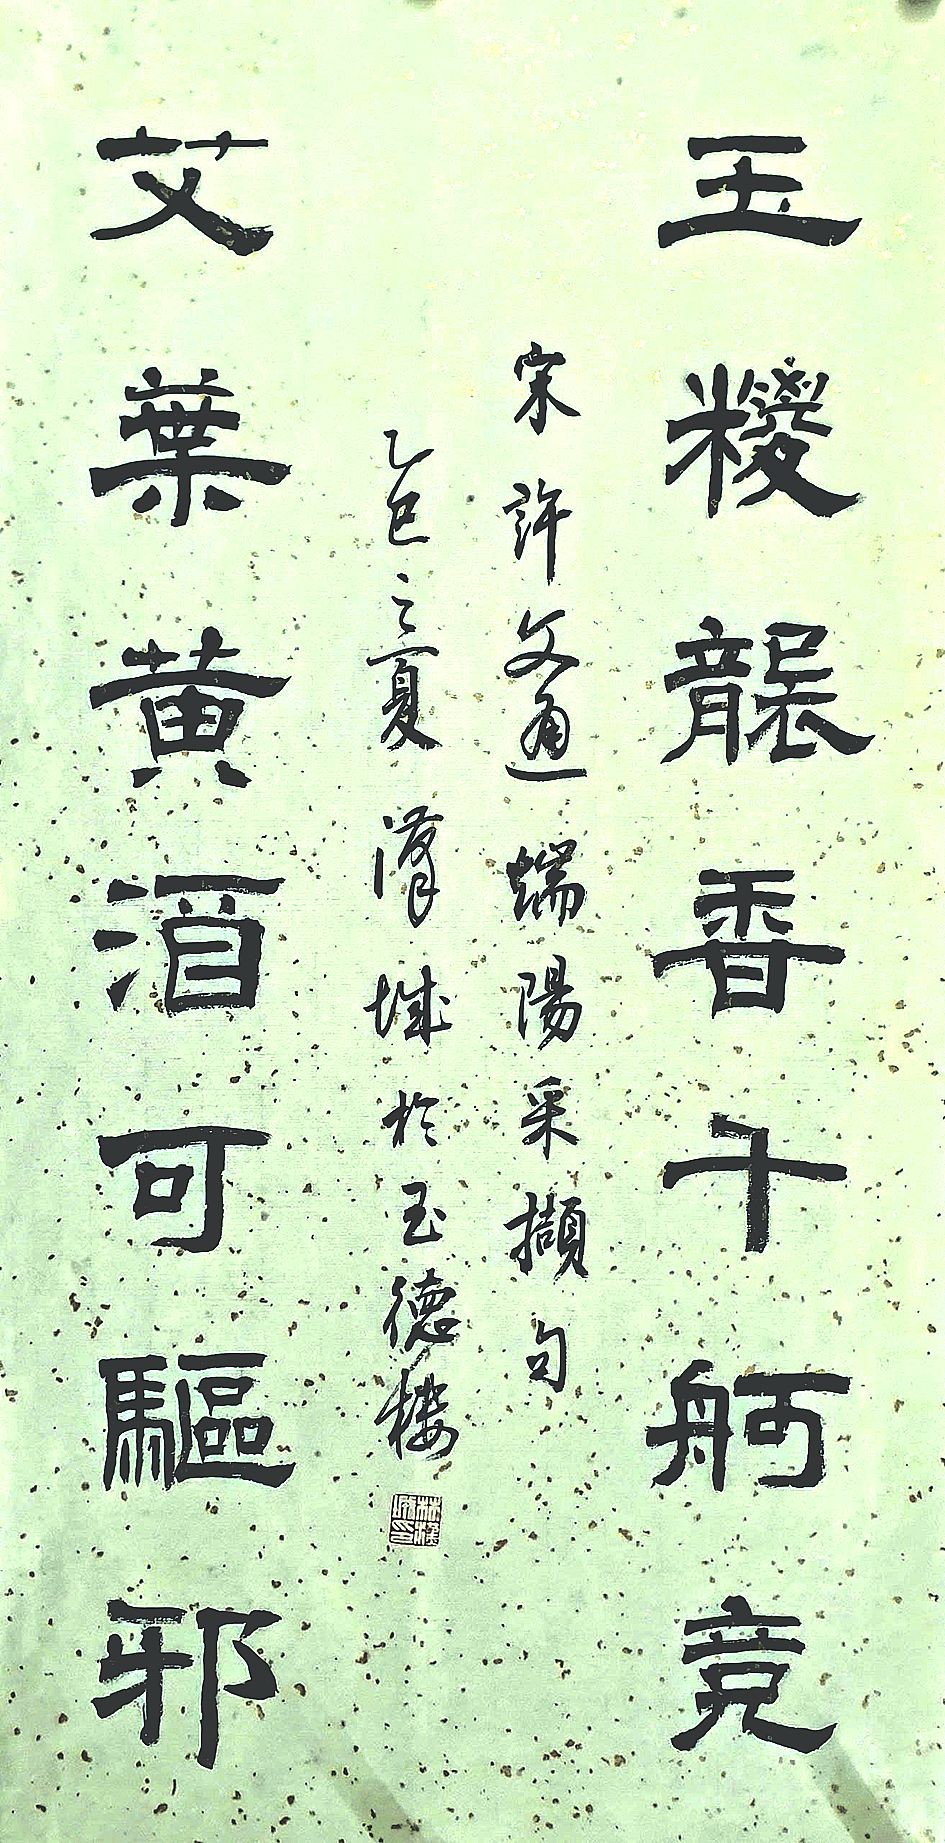 玉糉襲香千舸竞
宋許文通端陽采擷句
乙巳之夏 城於玉德楼
艾葉黄酒可驅邪